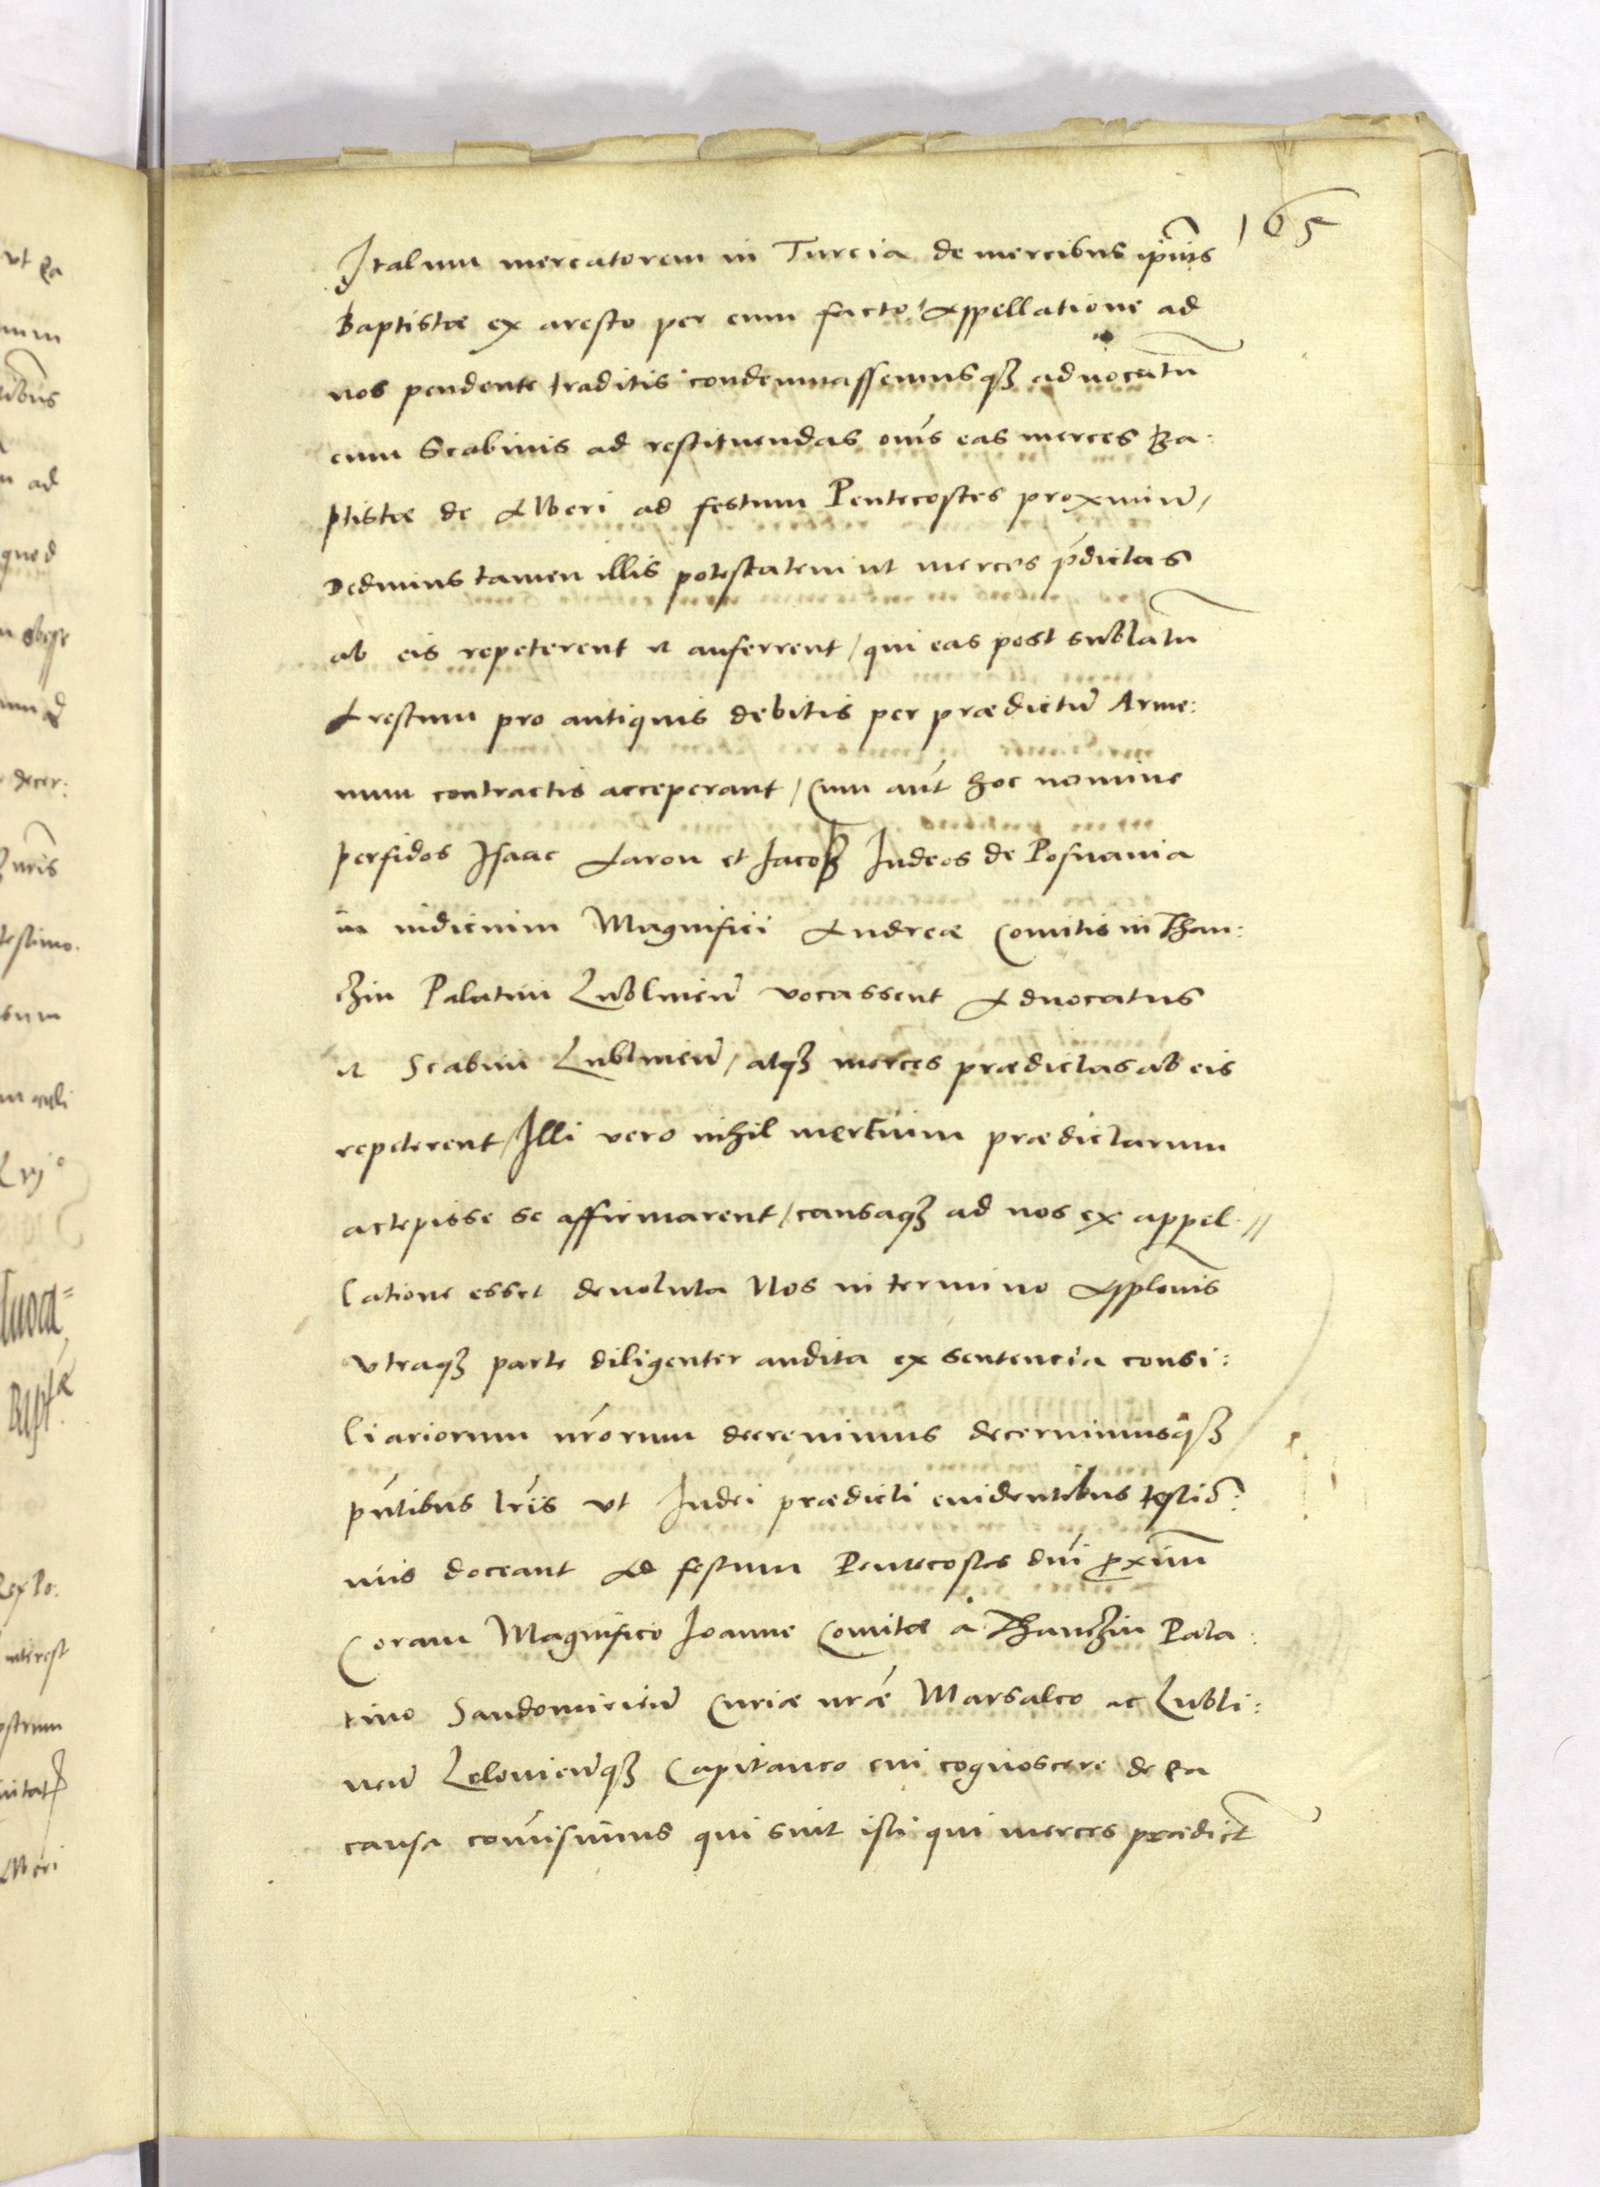 165
Italum mercatorem in Turcia de mercibus ipíus
Baptistæ ex aresto per eum facto Appellatione ad
nos pendente traditis condemnassemusqꝫ advocatū
cum Scabinis ad restituendas oms eas merces Ba:
ptistæ de Alberi ad festum Pentecostes proximū,
Dedimus tamen illis potestatem ut merces pdictas
ab eis repeterent et auferrent / qui eas post sublatū
Arestum pro antiquis debitis per prædictū Arme:
num contractis acceperant / Cum aut hoc nomine
perfidos Isaac Aaron et Jacob Judeos de Posnania
in iudicium Magnifici Andreæ Comitis in Than:
czin Palatini Lublineñ vocassent Advocatus
et Scabini Lublineñ / atqꝫ merces prædictas ab eis
repeterent / Illi vero nihil mercium prædictarum
accepisse se affirmarent / causaqꝫ ad nos ex appel //
latione esset devoluta Nos in termino Applonis
Utraqꝫ parte diligenter audita ex sentencia consi:
liariorum nrorum decrevimus decernimusqꝫ
pntibus lris ut Judei prædicti evidentibus testio:
niis doceant Ad festum Pentecostes dni proximū
Coram Magnifico Joanne Comite à Thanczin Pala:
tino Sandomirieñ Curiæ nræ Marsalco ac Lubli:
neñ Lelovieñqꝫ Capitaneo cui cognoscere de ea
causa comisimus qui sint isti qui merces prædict
ut ea
ad
quod
decer:
nris
testimo.
Baptæ
interest
Alberi